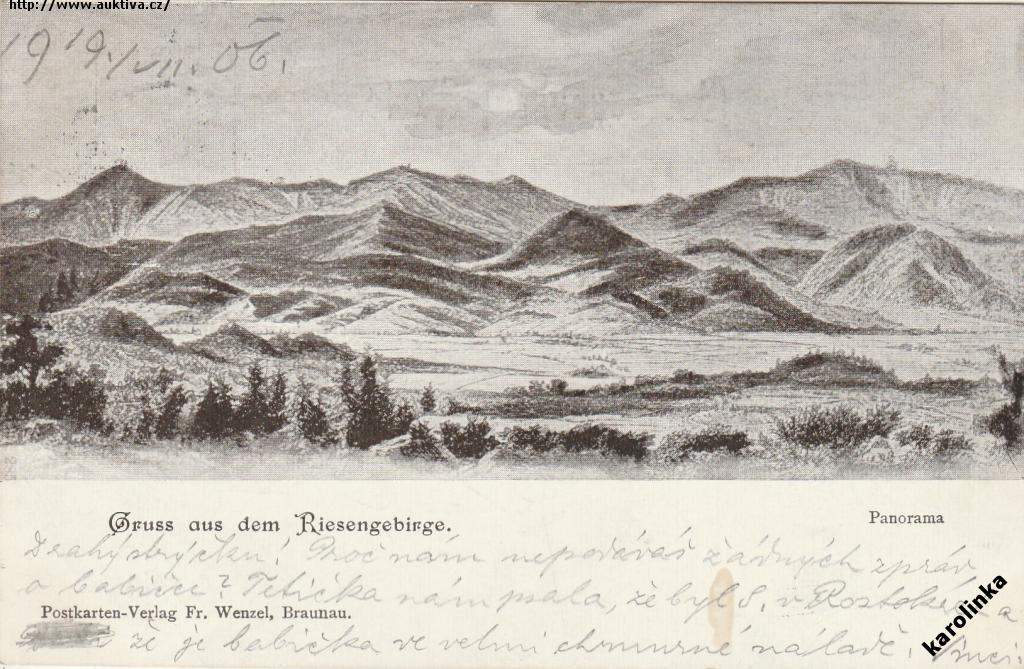 http://www.auktiva.cz/
19 19./VII. 06.
Gruss aus dem Riesengebirge.
Panorama
Drahý strýčku! Proč nám nepodáváš žádných zpráv
o babičce? Tetička nám psala, že byl S. v Roztokách a
Postkarten-Verlag Fr. Wenzel, Braunau.
že je babička ve velmi chmurné náladě.
karolinka